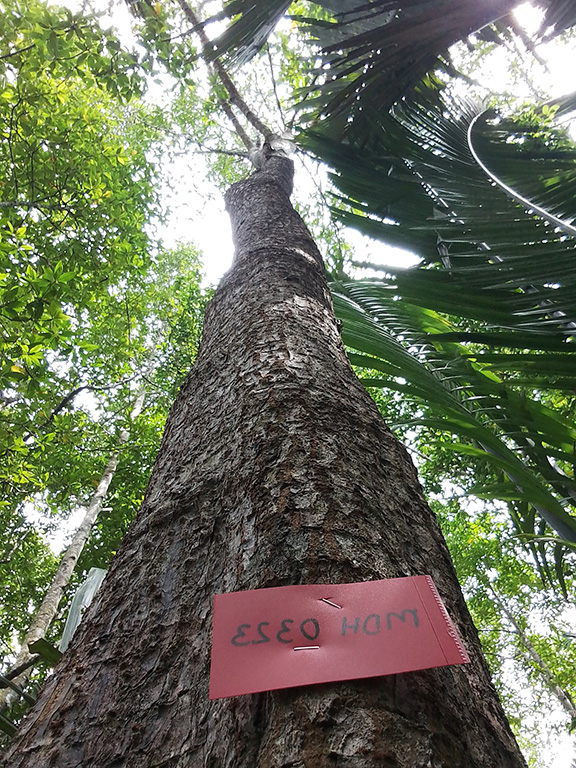 MDH 0323